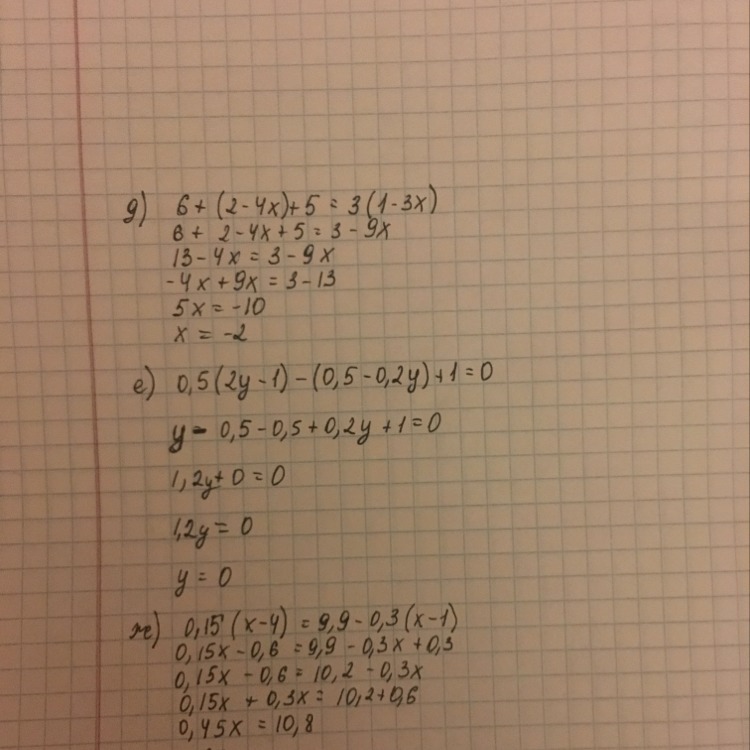 д) 6 + (2 - 4x) + 5 = 3(1 - 3x)
6 + 2 - 4x + 5 = 3 - 9x
13 - 4x = 3 - 9x
-4x + 9x = 3 - 13
5x = -10
x = -2
е) 0,5(2y - 1) - (0,5 - 0,2y) + 1 = 0
y - 0,5 - 0,5 + 0,2y + 1 = 0
1,2y + 0 = 0
1,2y = 0
y = 0
ж) 0,15(x - 4) = 9,9 - 0,3(x - 1)
0,15x - 0,6 = 9,9 - 0,3x + 0,3
0,15x - 0,6 = 10,2 - 0,3x
0,15x + 0,3x = 10,2 + 0,6
0,45x = 10,8